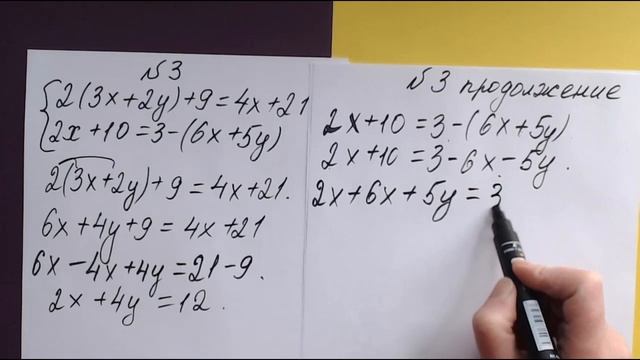 №3
{2(3x+2y)+9=4x+21
{2x+10=3-(6x+5y)
2(3x+2y)+9=4x+21.
6x+4y+9=4x+21
6x-4x+4y=21-9.
2x+4y=12.
№3 продолжение
2x+10=3-(6x+5y)
2x+10=3-6x-5y.
2x+6x+5y=3